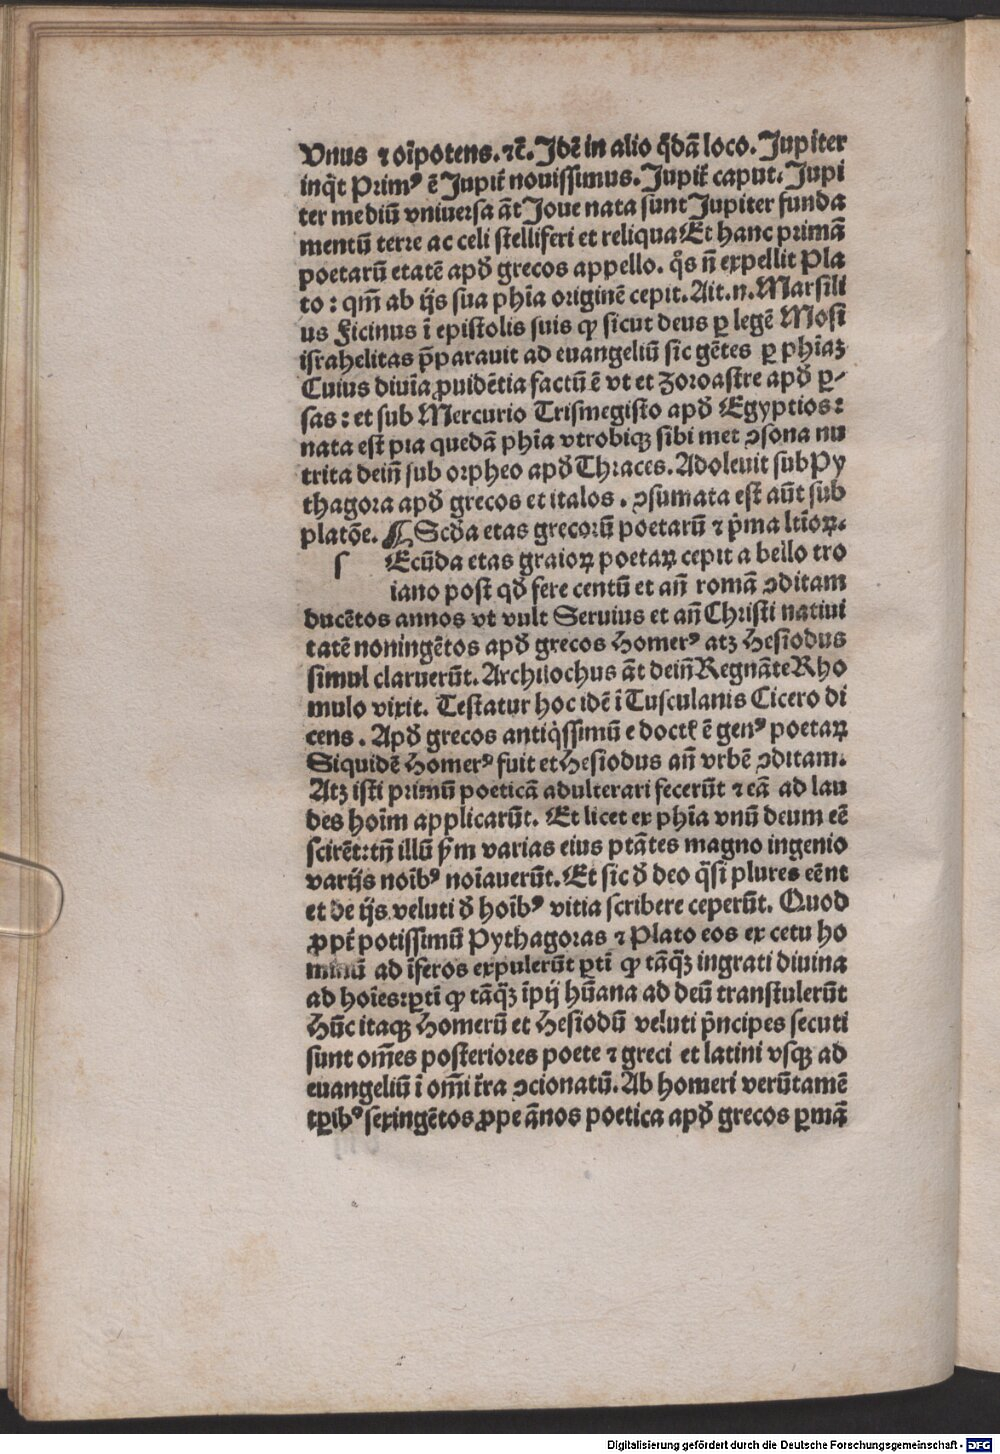 Vnus ⁊ oīpotens. ⁊c̄. Idē in alio q̄dā loco. Jupiter
inq̄t Primꝰ ē Jupit̄ nouissimus. Jupit̄ caput. Jupi
ter mediū vniuersa āt Joue nata sunt Jupiter funda
mentū terre ac celi stelliferi et reliqua Et hanc primā
poetarū etatē apđ grecos appello. q̄s n̄ expellit Pla
to: qm̄ ab ijs sua ph̄ia originē cepit. Ait .n. Marsili
us Ficinus ī epistolis suis ꝙ sicut deus ꝑ legē Mosi
israhelitas p̄parauit ad euangeliū sic gētes ꝑ ph̄iaꝫ
Cuius diuīa ꝓuidētia factū ē vt et Zoroastre apđ ꝑ⸗
sas: et sub Mercurio Trismegisto apđ Egyptios:
nata est pia quedā ph̄ia vtrobiqꝫ sibi met ꝯsona nu
trita dein̄ sub orpheo apđ Thraces. Adoleuit sub Py
thagora apđ grecos et italos. ꝯsumata est aūt sub
platōe. ¶ Scđa etas grecorū poetarū ⁊ p̄ma ltīoꝝ.
ſ Ecūda etas graioꝝ poetaꝝ cepit a bello tro
iano post qđ fere centū et an̄ romā ꝯditam
ducētos annos vt vult Seruius et an̄ Christi natiui
tatē noningētos apđ grecos Homerꝰ atꝫ Hesiodus
simul claruerūt. Archilochus āt dein̄ Regnāte Rho
mulo vixit. Testatur hoc idē ī Tusculanis Cicero di
cens. Apđ grecos antiq̄ssimū e doctꝭ ē genꝰ poetaꝝ
Siquidē Homerꝰ fuit et Hesiodus an̄ vrbē ꝯditam.
Atꝫ isti primū poeticā adulterari fecerūt ⁊ eā ad lau
des hoīm applicarūt. Et licet ex ph̄ia vnū deum eē
scirēt: tn̄ illū ẜm varias eius ptātes magno ingenio
varijs noībꝰ noīauerūt. Et sic đ deo q̄si plures eēnt
et de ijs veluti đ hoībꝰ vitia scribere ceperūt. Quod
ꝓpt̄ potissimū Pythagoras ⁊ Plato eos ex cetu ho
minū ad īferos expulerūt ꝑtī ꝙ tāq̄ꝫ ingrati diuina
ad hoīes: ꝑtī ꝙ tāq̄ꝫ īpij hūana ad deū transtulerūt
Hūc itaqꝫ Homerū et Hesiodū veluti p̄ncipes secuti
sunt om̄es posteriores poete ⁊ greci et latini vsqꝫ ad
euangeliū ī om̄i t̄ra ꝯcionatū. Ab homeri verūtamē
tꝑibꝰ sexingētos ꝓpe ānos poetica apđ grecos ꝑmā
Digitalisierung gefördert durch die Deutsche Forschungsgemeinschaft - DFG